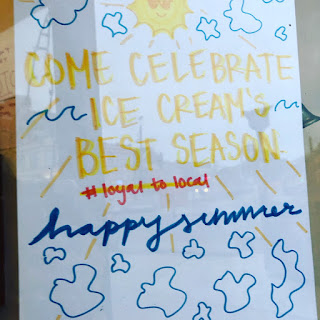 COME CELEBRATE
ICE CREAM'S
BEST SEASON
#loyal to local
happy summer